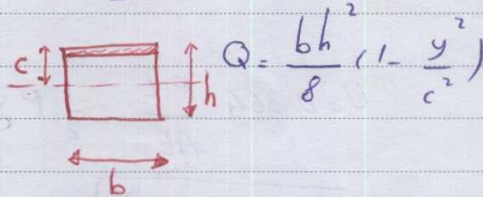 c
h
b
Q = bh²/8 (1 - y²/c²)